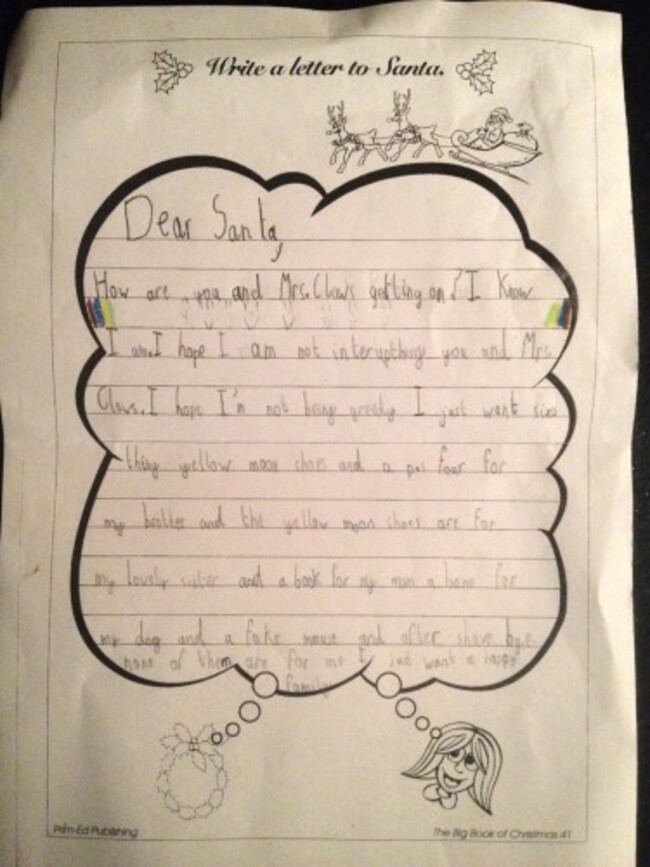 Write a letter to Santa.
Dear Santa,
How are you and Mrs. Claws getting on? I Know
I am. I hope I am not interupthing you and Mrs
Claws. I hope I'm not being greedy I just want six
thing yellow moon shoes and a pas four for
my brother and the yellow moon shoes are for
my lovely sister and a book for my mam a bone for
my dog and a fake mouse and after shave bye.
none of them are for me I just want a happy
family
Prim-Ed Publishing
The Big Book of Christmas 41